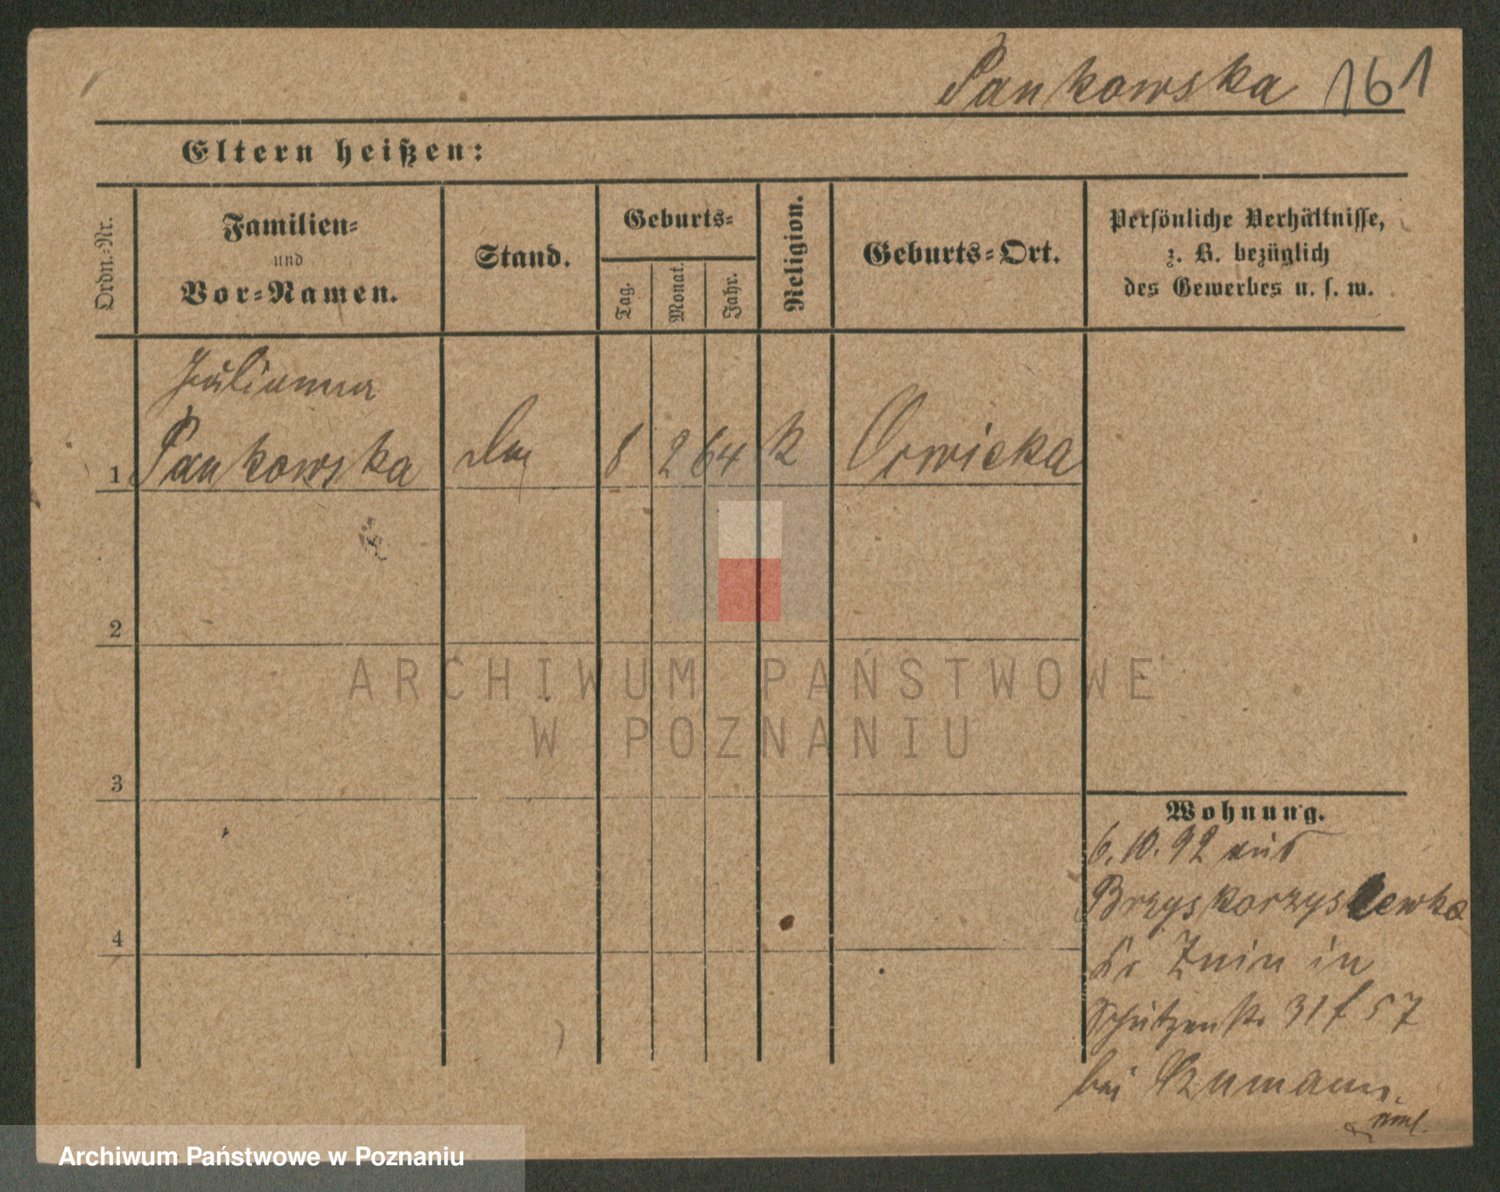 Pankowska 161
Eltern heißen:
Ordn.-Nr.
Familien-
und
Vor-Namen.
Stand.
Geburts-
Tag.
Monat.
Jahr.
Religion.
Geburts-Ort.
Persönliche Verhältnisse,
z. B. bezüglich
des Gewerbes u. s. w.
Julianna
1 Pankowska 8 2 64 k
2
3
4
Wohnung.
6.10.92 aus
Brzyskorzystewka
Kr Znin in
Schützenstr 31 f 57
bei
ARCHIWUM PAŃSTWOWE
W POZNANIU
Archiwum Państwowe w Poznaniu